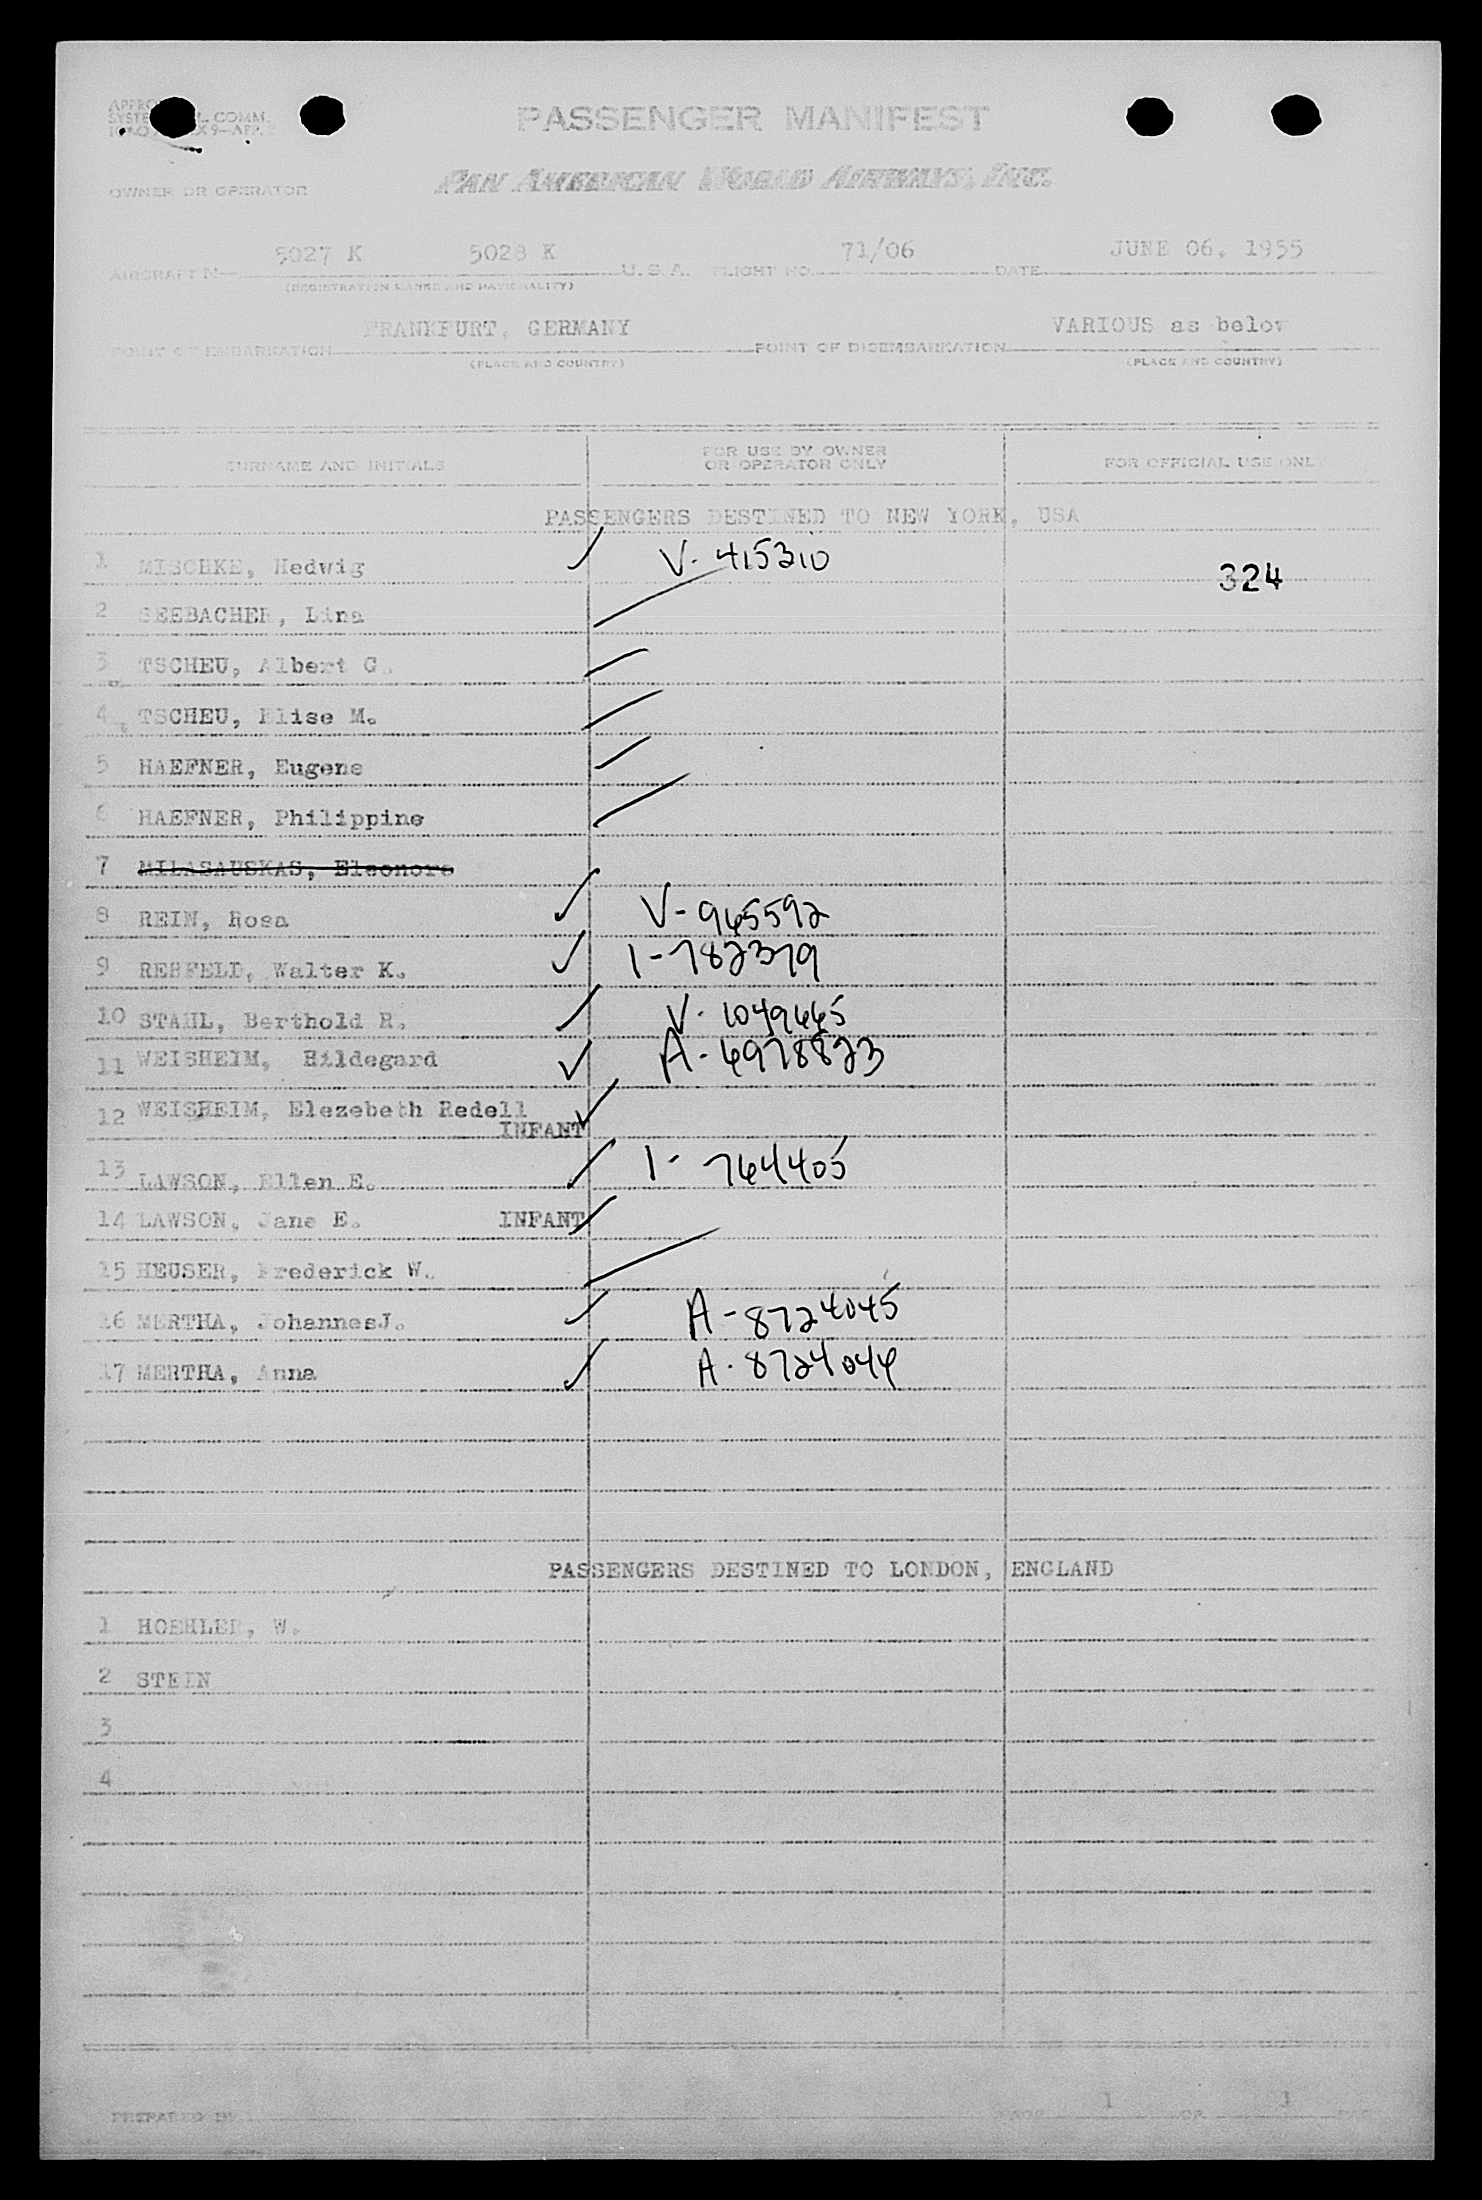 PASSENGER MANIFEST
PAN AMERICAN WORLD AIRWAYS, INC.
OWNER OR OPERATOR
5027 K 5028 K 71/06 JUNE 06, 1955
AIRCRAFT U.S.A. FLIGHT NO. DATE
(REGISTRATION MARKS AND NATIONALITY)
FRANKFURT, GERMANY VARIOUS as below
POINT OF EMBARKATION POINT OF DISEMBARKATION
(PLACE AND COUNTRY) (PLACE AND COUNTRY)
SURNAME AND INITIALS FOR USE BY OWNER OR OPERATOR ONLY FOR OFFICIAL USE ONLY
PASSENGERS DESTINED TO NEW YORK, USA
1 MISCHKE, Hedwig V- 415210 324
2 SEEBACHER, Lina
3 TSCHEU, Albert G.
4 TSCHEU, Elise M.
5 HAEFNER, Eugene
6 HAEFNER, Philippine
7 MILASAUSKAS, Eleonore
8 REIN, Rosa V-965592
9 REHFELD, Walter K. 1-782379
10 STAHL, Berthold R. V- 1049665
11 WEISHEIM, Hildegard A-6978823
12 WEISHEIM, Elezebeth Redell
INFANT
13 LAWSON, Ellen E. 1- 764405
14 LAWSON, Jane E. INFANT
15 HEUSER, Frederick W.
16 MERTHA, JohannesJ. A-8724045
17 MERTHA, Anna A-8724044
PASSENGERS DESTINED TO LONDON, ENGLAND
1 HOEHLER, W.
2 STEIN
3
4
PREPARED BY PAGE 1 OF 1